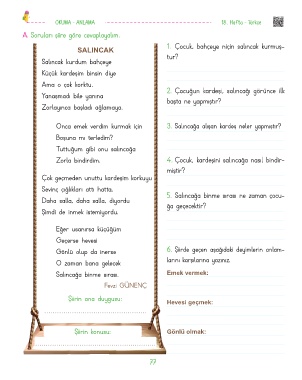 OKUMA - ANLAMA
18. Hafta - Türkçe
A. Soruları şiire göre cevaplayalım.
SALINCAK
Salıncak kurdum bahçeye
Küçük kardeşim binsin diye
Ama o çok korktu,
Yanaşmadı bile yanına
Zorlayınca başladı ağlamaya.
Onca emek verdim kurmak için
Boşuna mı terledim?
Tuttuğum gibi onu salıncağa
Zorla bindirdim.
Çok geçmeden unuttu kardeşim korkuyu
Sevinç çığlıkları attı hatta,
Daha salla, daha salla, diyordu
Şimdi de inmek istemiyordu.
Eğer usanırsa küçüğüm
Geçerse hevesi
Gönlü olup da inerse
O zaman bana gelecek
Salıncağa binme sırası.
Fevzi GÜNENÇ
Şiirin ana duygusu:
Şiirin konusu:
1. Çocuk, bahçeye niçin salıncak kurmuş-
tur?
2. Çocuğun kardeşi, salıncağı görünce ilk
başta ne yapmıştır?
3. Salıncağa alışan kardeş neler yapmıştır?
4. Çocuk, kardeşini salıncağa nasıl bindir-
miştir?
5. Salıncağa binme sırası ne zaman çocu-
ğa geçecektir?
6. Şiirde geçen aşağıdaki deyimlerin anlam-
larını karşılarına yazınız.
Emek vermek:
Hevesi geçmek:
Gönlü olmak:
77